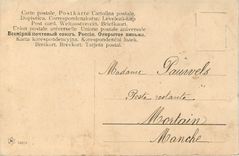 Carte postale. Postkarte Cartolina postale.
Dopisnice. Correspondenzkarte. Levelezö-lap.
Post card. Weltpostverein. Briefkaart.
Union postale universelle Unione postale universale
Всемірный почтовый союзъ. Россія. Открытое письмо.
Karta korespondencyjna. Korespondenční lístek.
Brefkort. Brevkort. Tarjeta postal.
Madame Pauwels
Poste restante
Mortain
Manche